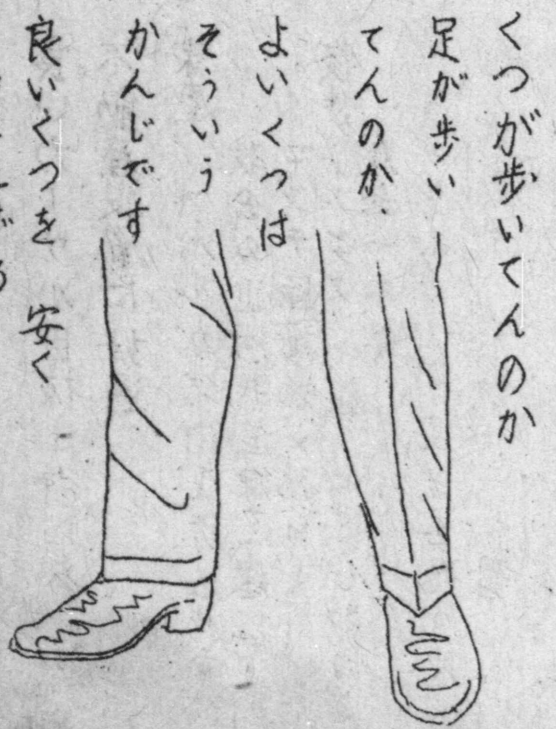 くつが歩いてんのか
足が歩い
てんのか、
よいくつは
そういう
かんじです
良いくつを 安く